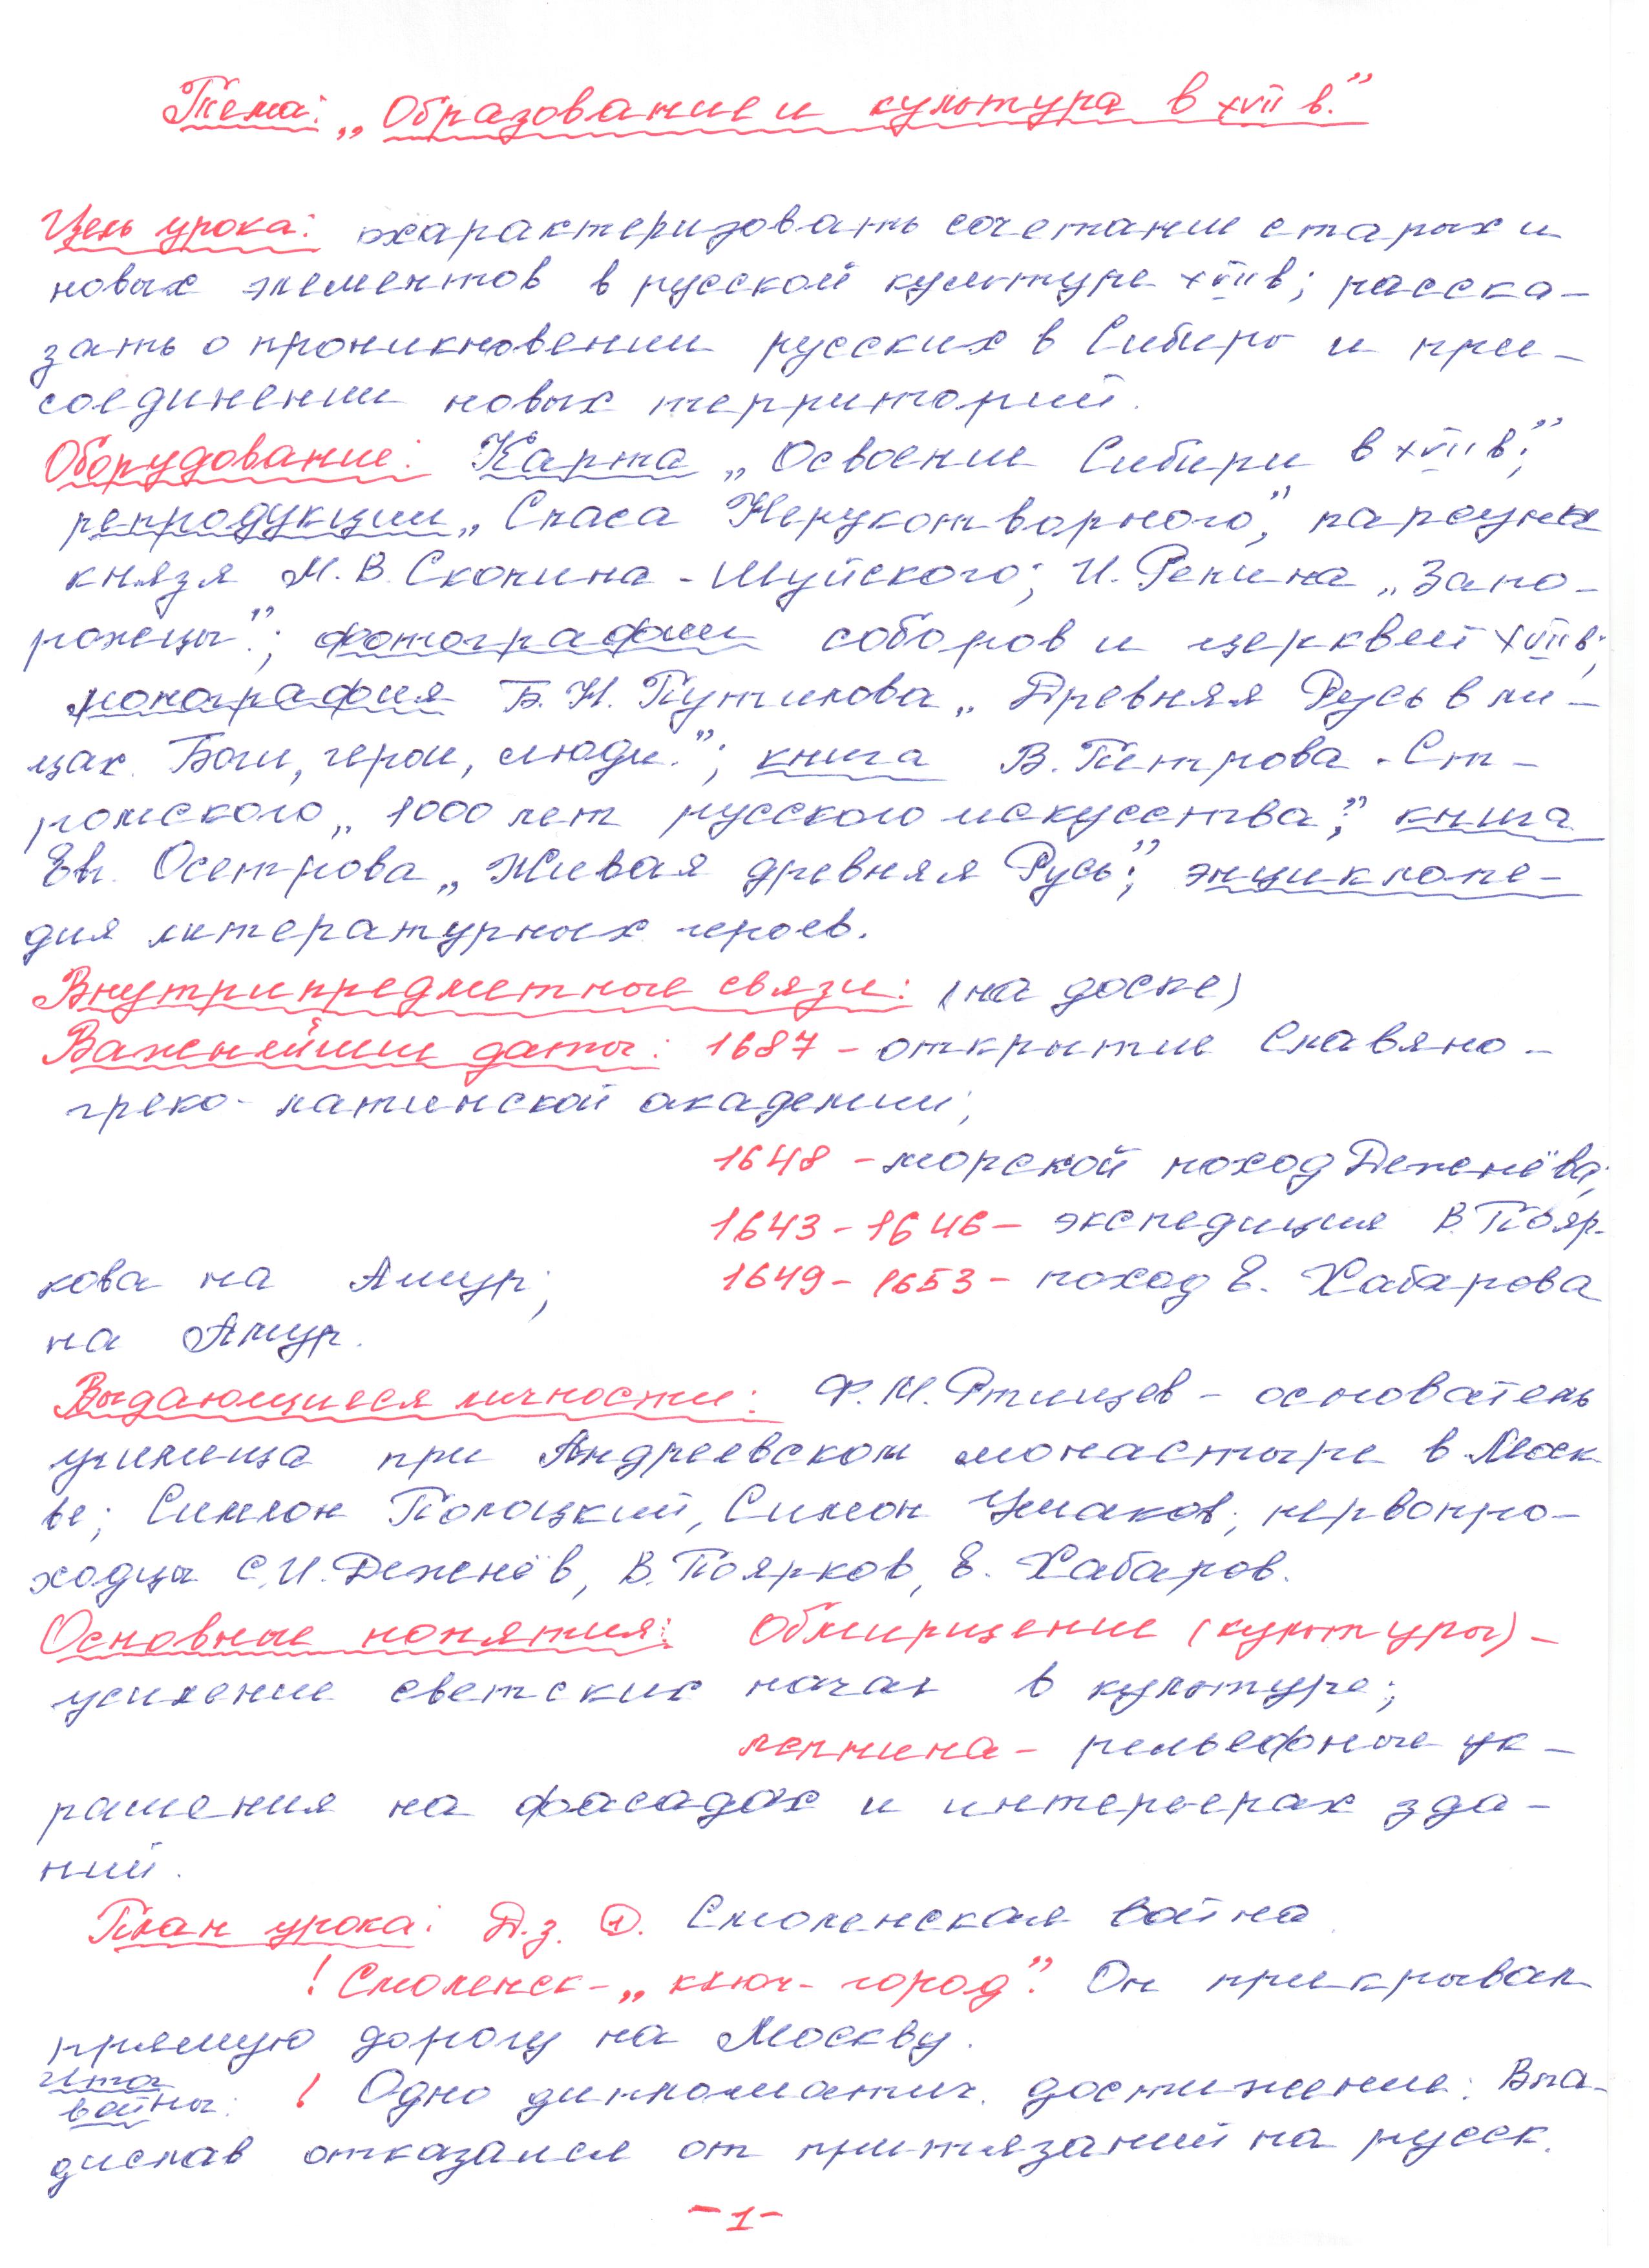 Тема: „Образование и культура в XVII в."
Цель урока: охарактеризовать сочетание старых и
новых элементов в русской культуре XVII в; расска-
зать о проникновении русских в Сибирь и при-
соединении новых территорий.
Оборудование: Карта „Освоение Сибири в XVII в";
репродукции „Спаса Нерукотворного", парсуна
князя М.В. Скопина-Шуйского; И. Репина „Запо-
рожцы"; фотографии соборов и церквей XVII в;
монография Б.Н. Путилова „Древняя Русь в ли-
цах. Боги, герои, люди."; книга В. Петрова-Ст-
ромского „1000 лет русского искусства"; книга
Евг. Осетрова „Живая древняя Русь"; энциклопе-
дия литературных героев.
Внутрипредметные связи: (на доске)
Важнейшие даты: 1687 - открытие Славяно-
греко-латинской академии;
1648 - морской поход Дежнёва;
1643-1646- экспедиция В. Пояр-
кова на Амур; 1649-1653- поход Е. Хабарова
на Амур.
Выдающиеся личности: Ф.М. Ртищев - основатель
училища при Андреевском монастыре в Моск-
ве; Симеон Полоцкий, Симон Ушаков; первопро-
ходцы С.И. Деженёв, В. Поярков, Е. Хабаров.
Основные понятия: Обмирщение (культуры)-
усиление светских начал в культуре;
лепнина- рельефные ук-
рашения на фасадах и интерьерах зда-
ний.
План урока: Д.з. 1. Смоленская война.
! Смоленск-„ключ-город". Он прикрывал
прямую дорогу на Москву.
Итог
войны: ! Одно дипломатич. достижение: Вла-
дислав отказался от притязаний на русск.
-1-